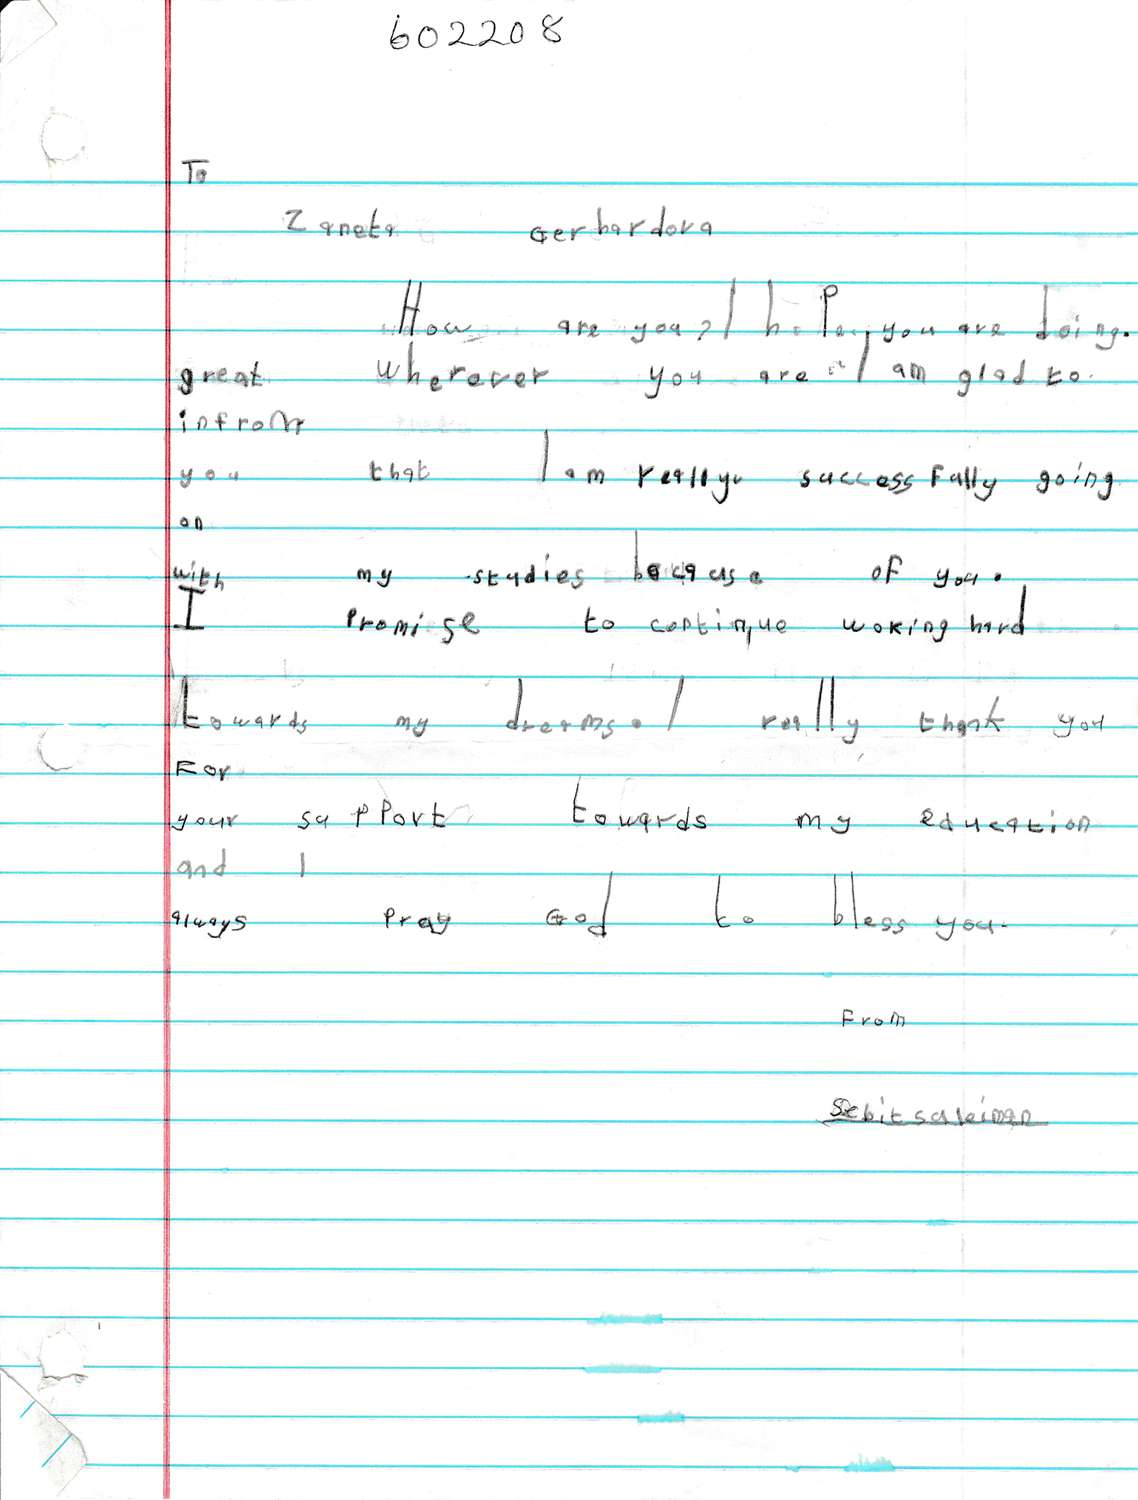 602208
To
Zaneta Gerhardova
How are you? I hope, you are doing.
great wherever you are I am glad to.
infrom
you that I am really successfully going
on
with my studies because of you.
I Promise to continue woking hard
towards my dreams. I really thank you
For
your support towards my education
and I
always Pray God to bless you.
From
Sebit suleiman